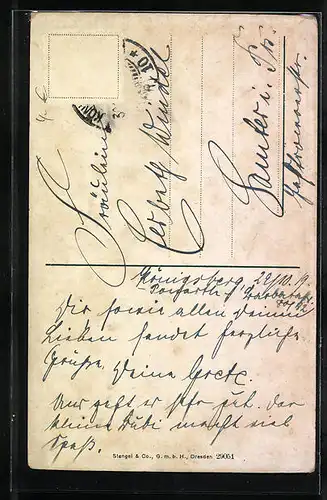 Fräulein
Wenzel
Samter i. Ps.
Königsberg 29/10. 19.
Dir sowie allen Deinen
Lieben sendet herzliche
Grüße Deine Grete.
Uns geht es sehr gut. Der
kleine Bubi macht viel
Spaß.
Stengel & Co., G. m. b. H., Dresden 29051